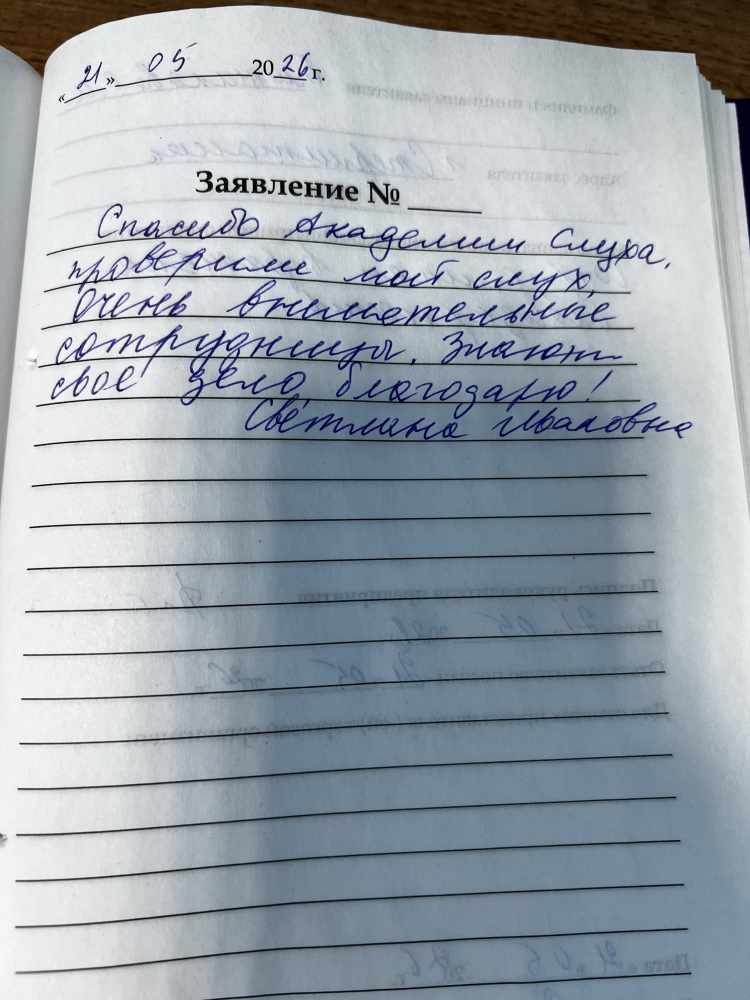 «21» 05 2026 г.
Заявление № ____
Спасибо Академии Слуха,
проверили мой слух,
Очень внимательные
сотрудницы. Знают
свое дело, благодарю!
Светлана Ивановна